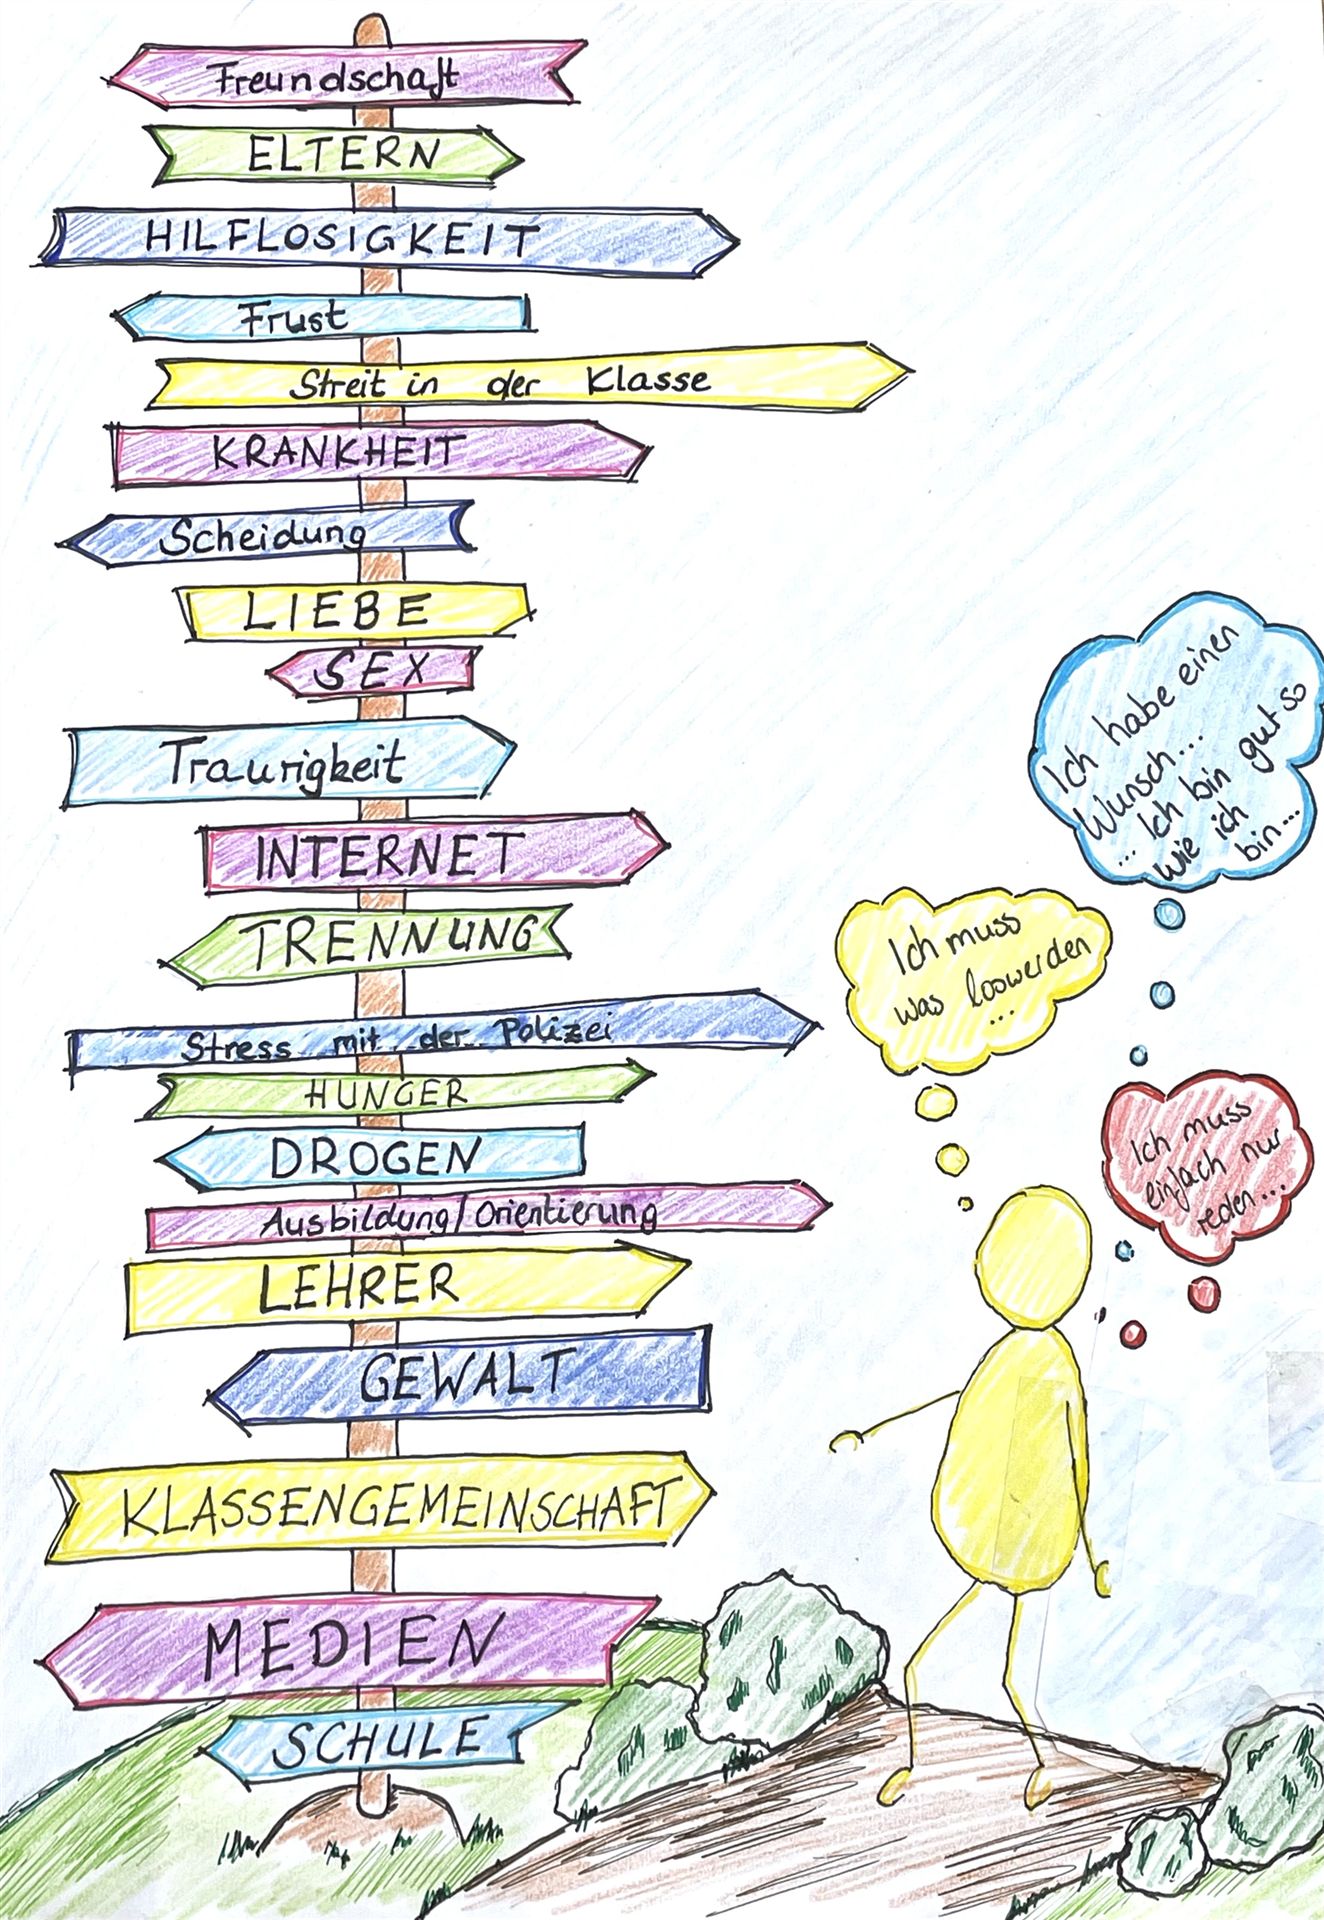 Freundschaft
ELTERN
HILFLOSIGKEIT
Frust
Streit in der Klasse
KRANKHEIT
Scheidung
LIEBE
SEX
Traurigkeit
INTERNET
TRENNUNG
Stress mit der Polizei
HUNGER
DROGEN
Ausbildung/Orientierung
LEHRER
GEWALT
KLASSENGEMEINSCHAFT
MEDIEN
SCHULE
Ich habe einen
Wunsch...
... Ich bin gut so
wie ich
bin...
Ich muss
was loswerden
...
Ich muss
einfach nur
reden...